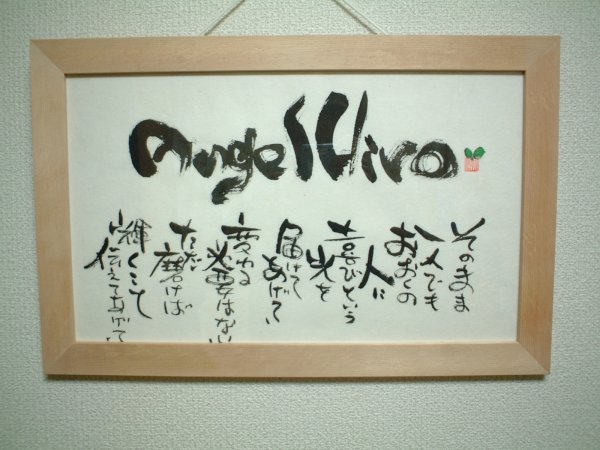 Angel Hiro
そのまま
一人でも
おおくの
人に
喜びという
光を
届けて
あげて
変わる
必要はない
ただ
磨けば
輝くこと
伝えてあげて